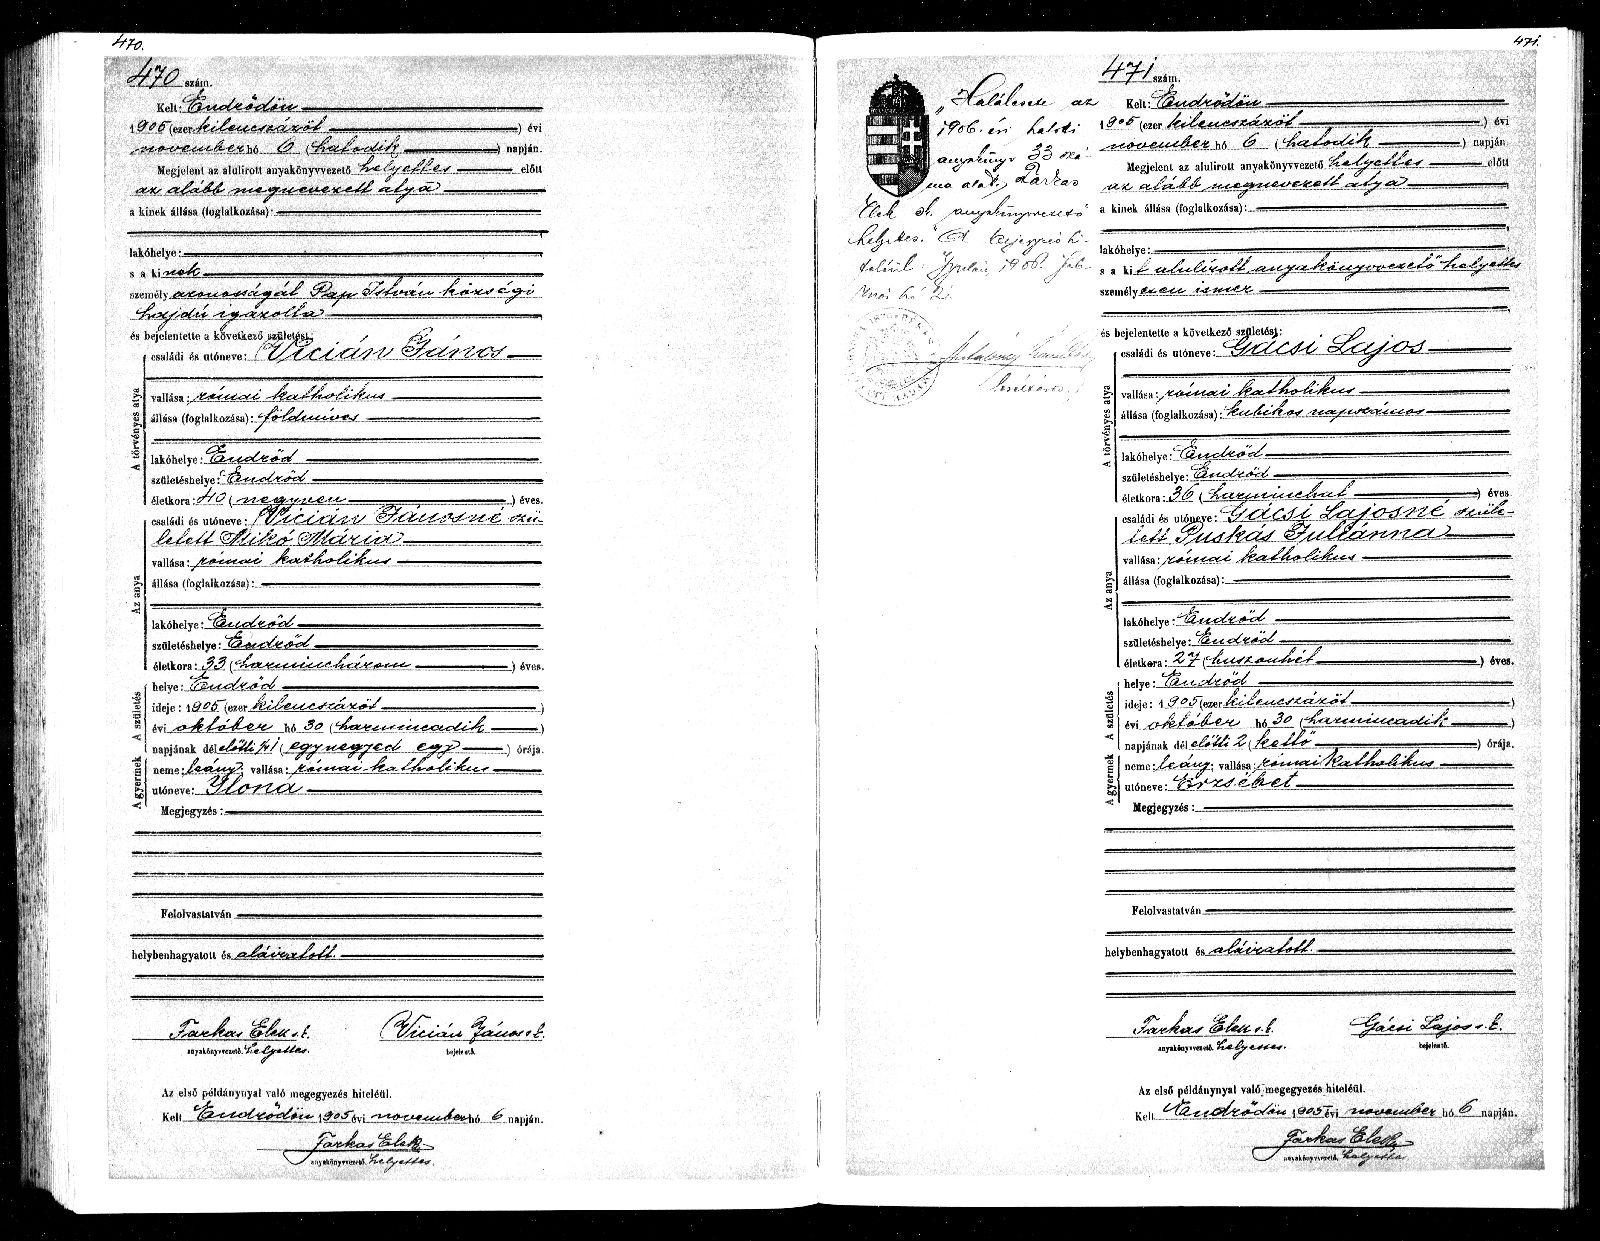 470.
470 szám.
Kelt: Endrődön
1905 (ezer kilencszázöt) évi
november hó 6 (hatodik) napján.
Megjelent az alulirott anyakönyvvezető helyettes előtt
az alább megnevezett atya
a kinek állása (foglalkozása):
lakóhelye:
s a kinek
személy azonosságát Pap István községi
hajdú igazolta
és bejelentette a következő születést:
A törvényes atya
családi és utóneve: Vicián János
vallása: római katholikus
állása (foglalkozása): földmíves
lakóhelye: Endrőd
születéshelye: Endrőd
életkora: 40 (negyven) éves.
Az anya
családi és utóneve: Vicián Jánosné szü-
letett Mikó Mária
vallása: római katholikus
állása (foglalkozása):
lakóhelye: Endrőd
születéshelye: Endrőd
életkora: 33 (harminchárom) éves.
A születés
helye: Endrőd
ideje: 1905 (ezer kilencszázöt)
évi október hó 30 (harmincadik)
napjának dél előtti ¼1 (egynegyed egy) órája.
A gyermek
neme: leány; vallása: római katholikus
utóneve: Ilona
Megjegyzés:
Felolvastatván
helybenhagyatott és aláiratott.
Farkas Elek s. k. Vicián János s. k.
anyakönyvvezető. helyettes. bejelentő.
Az első példánynyal való megegyezés hiteléül.
Kelt Endrődön 1905 évi november hó 6 napján.
Farkas Elek
anyakönyvvezető. helyettes.
471.
„Halálesete az
1906. évi halotti
anyakönyv 33 szá-
ma alatt. Farkas
Elek s. k. anyakönyvvezető
helyettes." A bejegyzés hi-
teléül. Gyulán, 1906. feb-
ruár hó 2.
471 szám.
Kelt: Endrődön
1905 (ezer kilencszázöt) évi
november hó 6 (hatodik) napján
Megjelent az alulirott anyakönyvvezető helyettes előtt
az alább megnevezett atya
a kinek állása (foglalkozása):
lakóhelye:
s a kit alulírott anyakönyvvezető helyettes
személyesen ismer
és bejelentette a következő születést:
A törvényes atya
családi és utóneve: Gácsi Lajos
vallása: római katholikus
állása (foglalkozása): kubikos napszámos
lakóhelye: Endrőd
születéshelye: Endrőd
életkora: 36 (harminchat) éves
Az anya
családi és utóneve: Gácsi Lajosné szüle-
tett Puskás Juliánna
vallása: római katholikus
állása (foglalkozása):
lakóhelye: Endrőd
születéshelye: Endrőd
életkora: 27 (huszonhét) éves.
A születés
helye: Endrőd
ideje: 1905 (ezer kilencszázöt)
évi október hó 30 (harmincadik)
napjának dél előtti 2 (kettő) órája.
A gyermek
neme: leány; vallása: római katholikus
utóneve: Erzsébet
Megjegyzés:
Felolvastatván
helybenhagyatott és aláiratott.
Farkas Elek s. k. Gácsi Lajos s. k.
anyakönyvvezető. helyettes. bejelentő.
Az első példánynyal való megegyezés hiteléül.
Kelt Endrődön 1905 évi november hó 6 napján.
Farkas Elek
anyakönyvvezető. helyettes